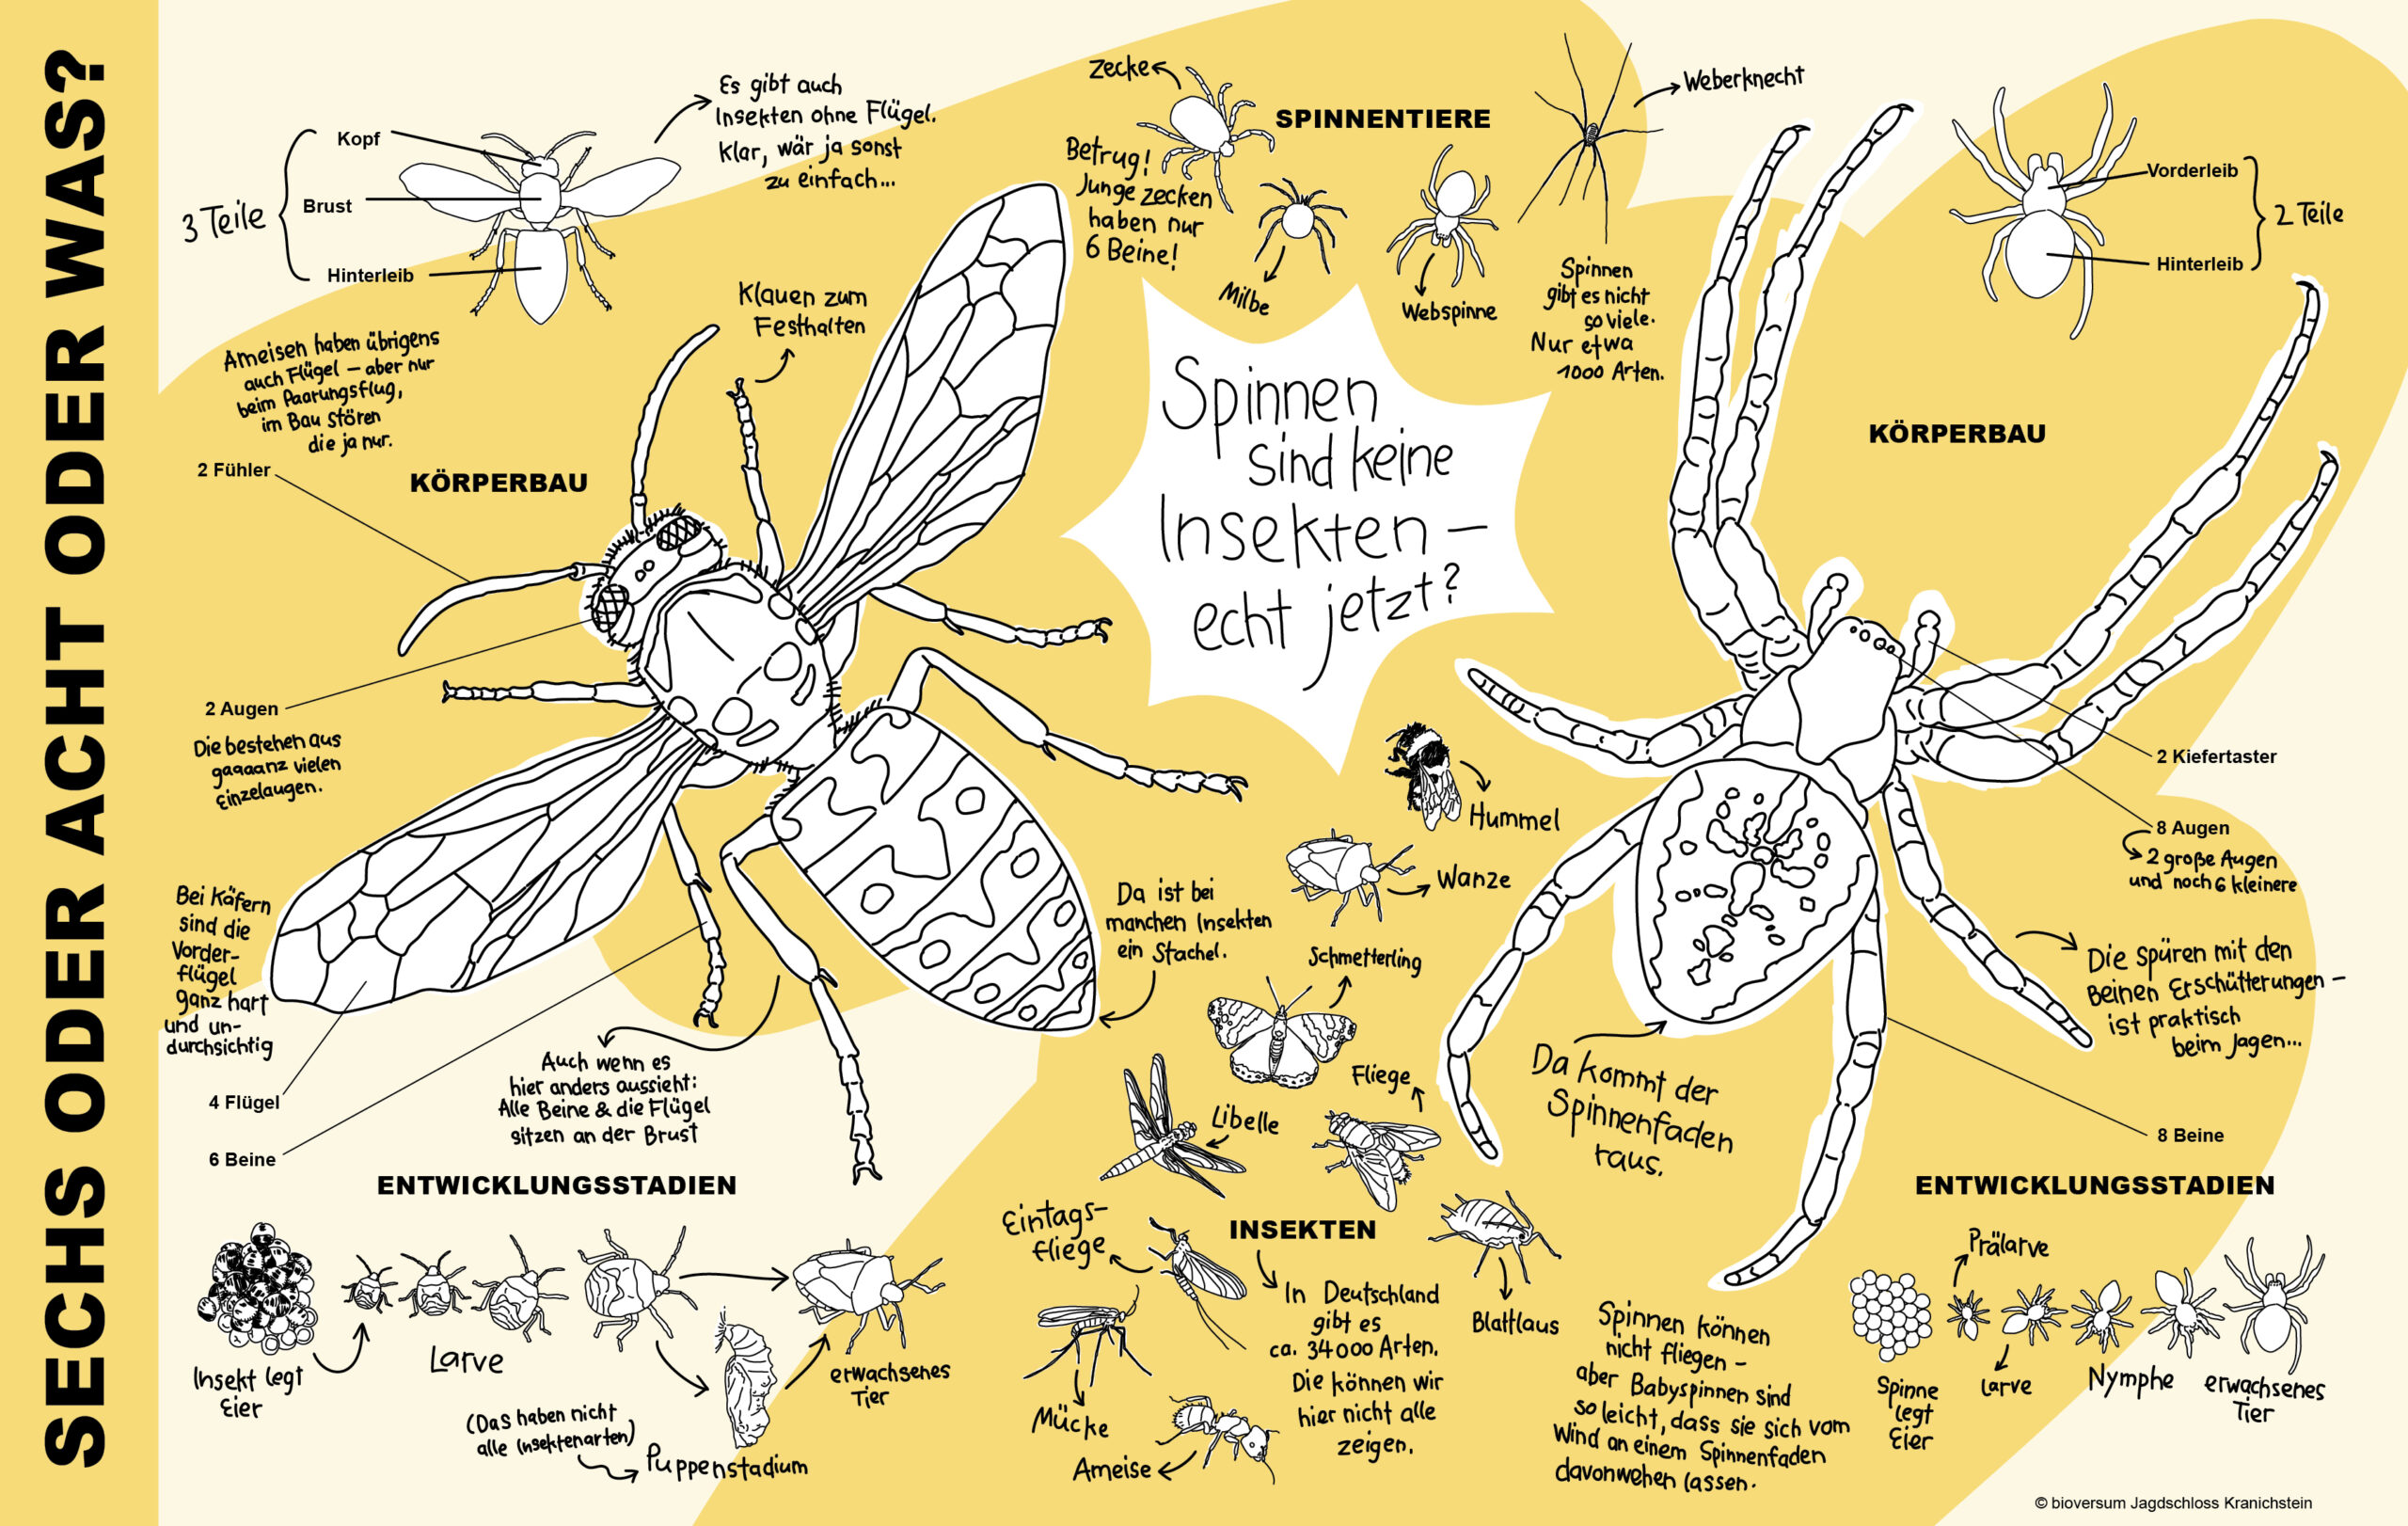 SECHS ODER ACHT ODER WAS?
3 Teile
Kopf
Brust
Hinterleib
Es gibt auch
Insekten ohne Flügel.
Klar, wär ja sonst
zu einfach...
Ameisen haben übrigens
auch Flügel – aber nur
beim Paarungsflug,
im Bau stören
die ja nur.
KÖRPERBAU
Klauen zum
Festhalten
2 Fühler
2 Augen
Die bestehen aus
gaaaanz vielen
Einzelaugen.
Bei Käfern
sind die
Vorder-
flügel
ganz hart
und un-
durchsichtig
4 Flügel
6 Beine
Auch wenn es
hier anders aussieht:
Alle Beine & die Flügel
sitzen an der Brust
Da ist bei
manchen Insekten
ein Stachel.
ENTWICKLUNGSSTADIEN
Insekt legt
Eier
Larve
(Das haben nicht
alle Insektenarten)
Puppenstadium
erwachsenes
Tier
SPINNENTIERE
Zecke
Betrug!
Junge Zecken
haben nur
6 Beine!
Milbe
Webspinne
Weberknecht
Spinnen
gibt es nicht
so viele.
Nur etwa
1000 Arten.
Spinnen
sind keine
Insekten –
echt jetzt?
Hummel
Wanze
Schmetterling
Fliege
Libelle
Eintags-
fliege
INSEKTEN
In Deutschland
gibt es
ca. 34000 Arten.
Die können wir
hier nicht alle
zeigen.
Blattlaus
Mücke
Ameise
Vorderleib
Hinterleib
2 Teile
KÖRPERBAU
2 Kiefertaster
8 Augen
2 große Augen
und noch 6 kleinere
Die spüren mit den
Beinen Erschütterungen –
ist praktisch
beim Jagen...
Da kommt der
Spinnenfaden
raus.
8 Beine
ENTWICKLUNGSSTADIEN
Prälarve
Spinne
legt
Eier
Larve
Nymphe
erwachsenes
Tier
Spinnen können
nicht fliegen –
aber Babyspinnen sind
so leicht, dass sie sich vom
Wind an einem Spinnenfaden
davonwehen lassen.
© bioversum Jagdschloss Kranichstein